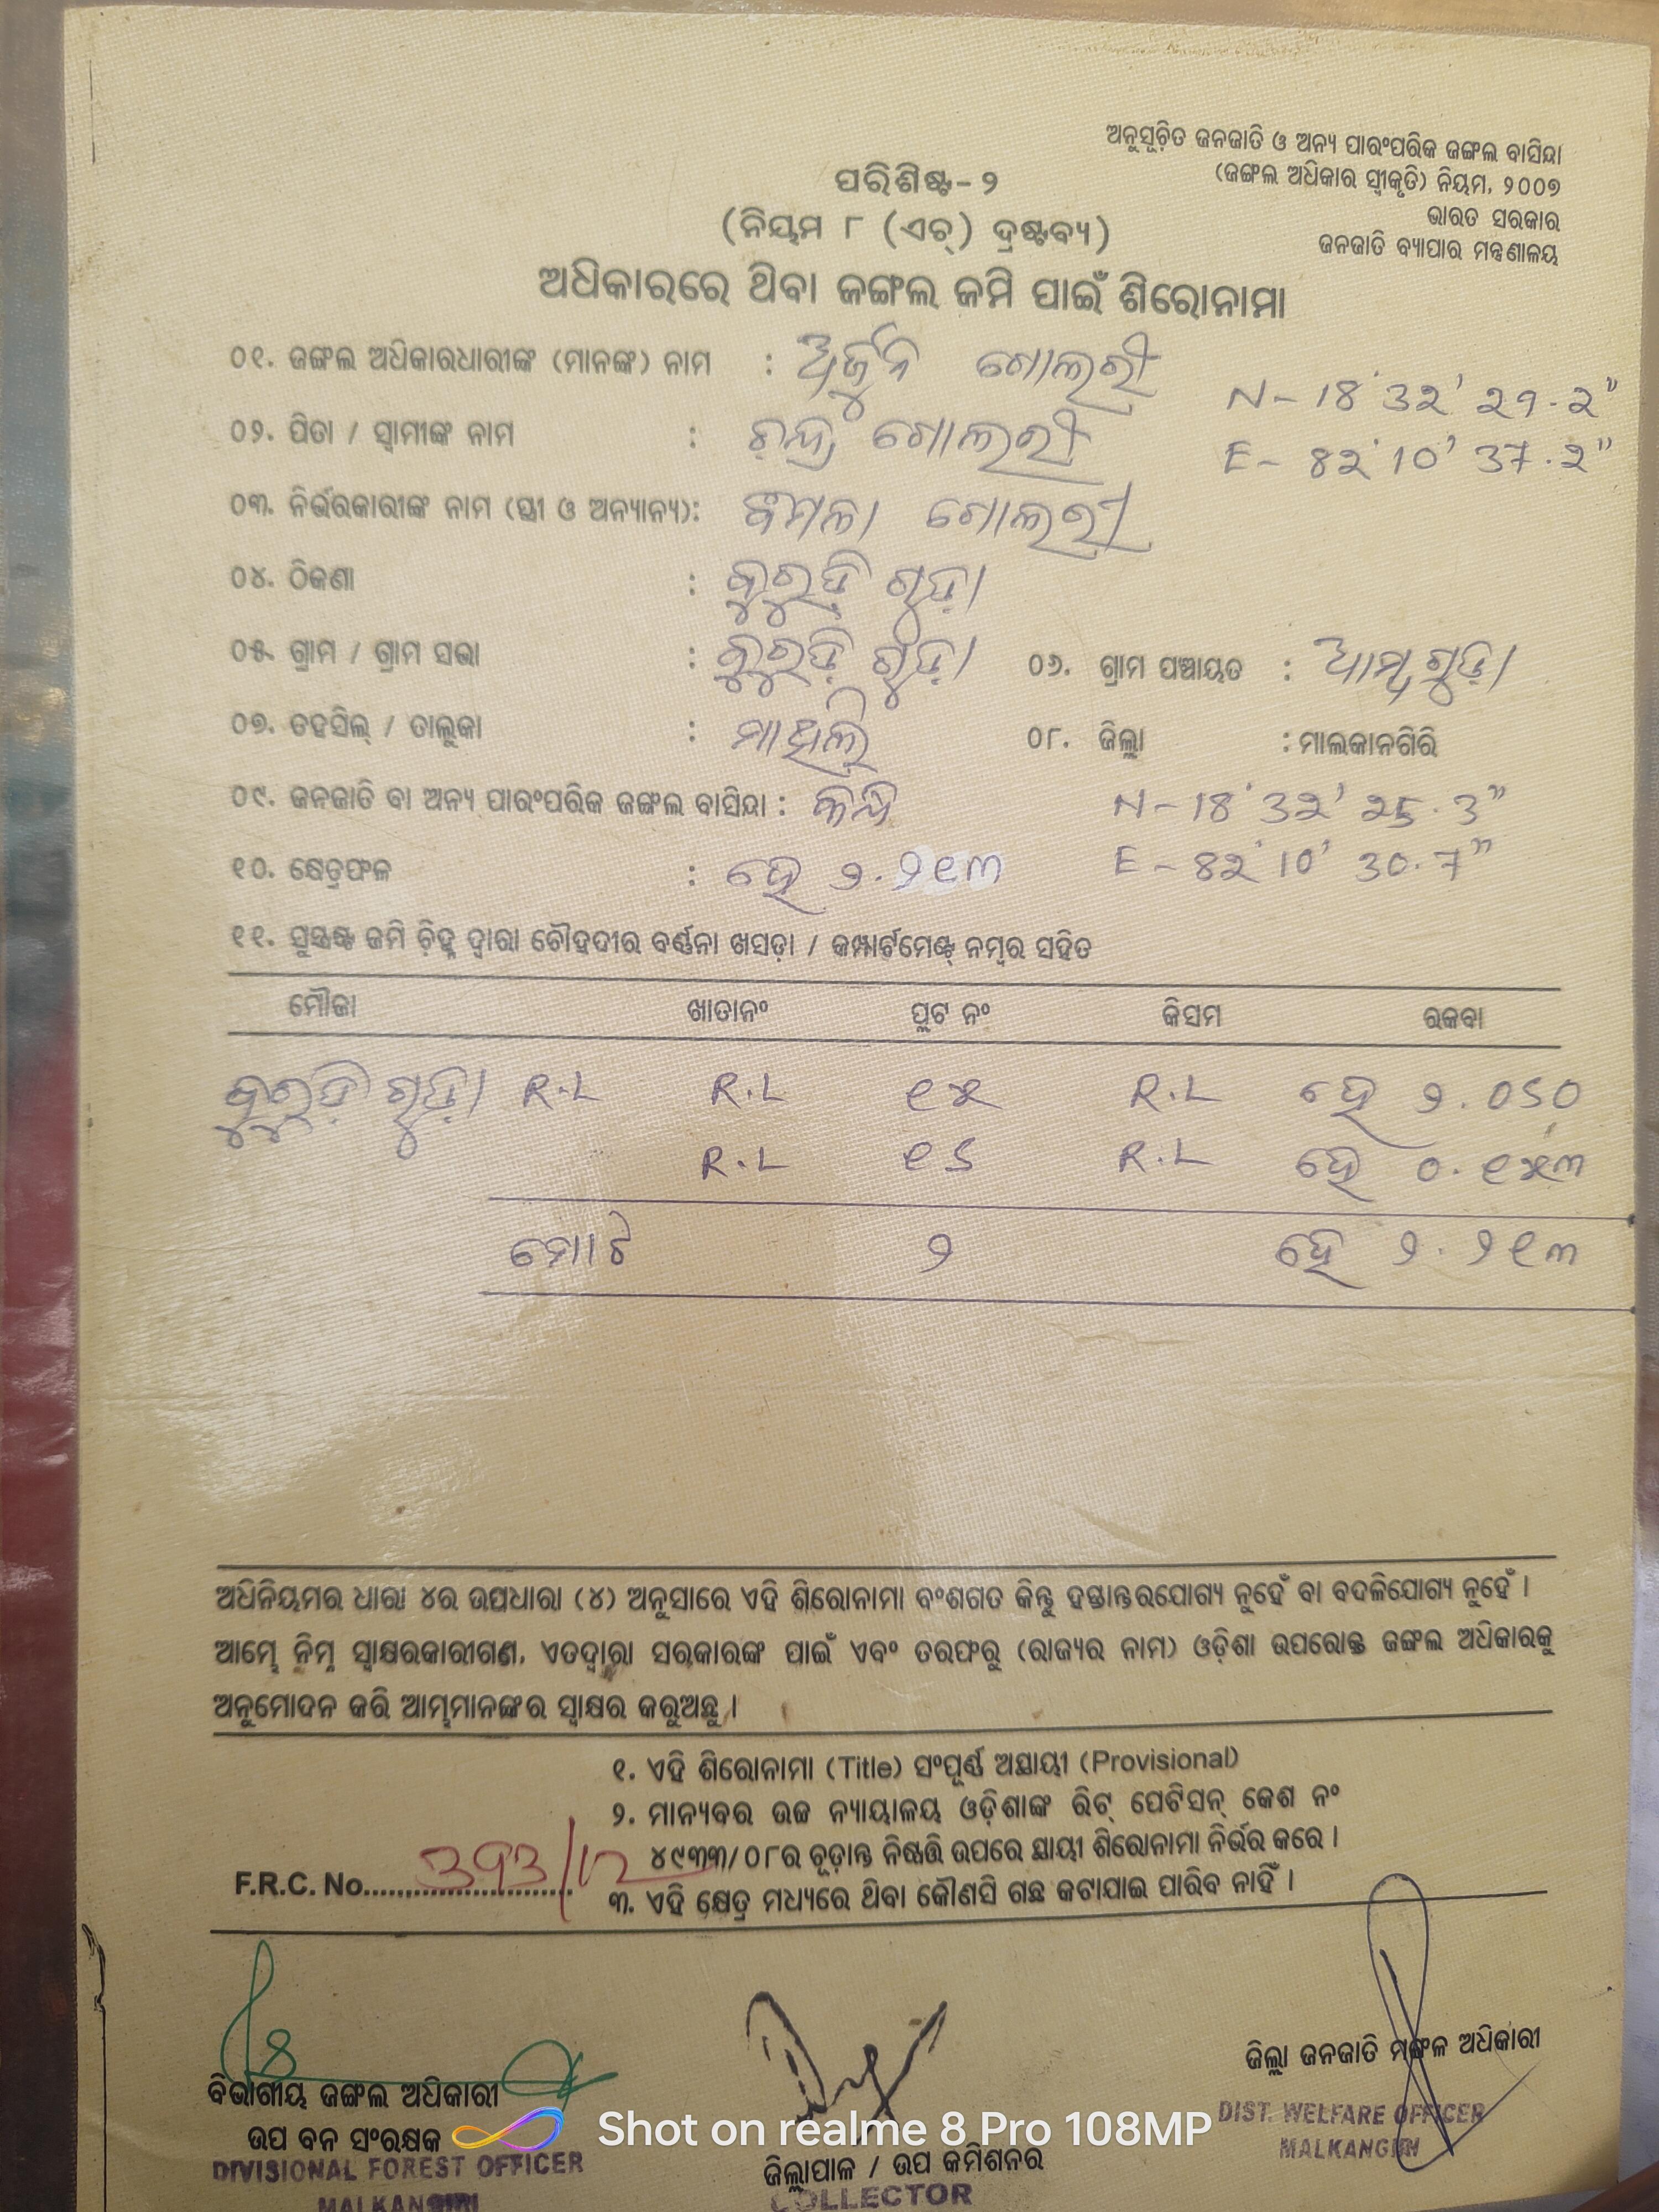 ଅନୁସୂଚିତ ଜନଜାତି ଓ ଅନ୍ୟ ପାରଂପରିକ ଜଙ୍ଗଲ ବାସିନ୍ଦା
(ଜଙ୍ଗଲ ଅଧିକାର ସ୍ୱୀକୃତି) ନିୟମ, ୨୦୦୭
ଭାରତ ସରକାର
ଜନଜାତି ବ୍ୟାପାର ମନ୍ତ୍ରଣାଳୟ
ପରିଶିଷ୍ଟ-୨
(ନିୟମ ୮ (ଏଚ୍) ଦ୍ରଷ୍ଟବ୍ୟ)
ଅଧିକାରରେ ଥିବା ଜଙ୍ଗଲ ଜମି ପାଇଁ ଶିରୋନାମା
୦୧. ଜଙ୍ଗଲ ଅଧିକାରଧାରୀଙ୍କ (ମାନଙ୍କ) ନାମ : ଅର୍ଜୁନ ଗୋଲରୀ
N - 18° 32' 29.2"
୦୨. ପିତା / ସ୍ୱାମୀଙ୍କ ନାମ : ଚନ୍ଦ୍ର ଗୋଲରୀ
E - 82° 10' 37.2"
୦୩. ନିର୍ଭରକାରୀଙ୍କ ନାମ (ସ୍ତ୍ରୀ ଓ ଅନ୍ୟାନ୍ୟ): ଗୋଲରୀ
୦୪. ଠିକଣା : କୁରୁଡ଼ି ଗୁଡ଼ା
୦୫. ଗ୍ରାମ / ଗ୍ରାମ ସଭା : କୁରୁଡ଼ି ଗୁଡ଼ା ୦୬. ଗ୍ରାମ ପଞ୍ଚାୟତ : ଆମ୍ବଗୁଡ଼ା
୦୭. ତହସିଲ୍ / ତାଲୁକା : ମାଥିଲି ୦୮. ଜିଲ୍ଲା : ମାଲକାନଗିରି
୦୯. ଜନଜାତି ବା ଅନ୍ୟ ପାରଂପରିକ ଜଙ୍ଗଲ ବାସିନ୍ଦା :
N - 18° 32' 25.3"
୧୦. କ୍ଷେତ୍ରଫଳ : ହେ ୨.୨୧୩
E - 82° 10' 30.7"
୧୧. ସୁସ୍ପଷ୍ଟ ଜମି ଚିହ୍ନ ଦ୍ୱାରା ଚୌହଦୀର ବର୍ଣ୍ଣନା ଖସଡ଼ା / କମ୍ପାର୍ଟମେଣ୍ଟ୍ ନମ୍ବର ସହିତ
ମୌଜା ଖାତାନଂ ପ୍ଲଟ ନଂ କିସମ ରକବା
କୁରୁଡ଼ି ଗୁଡ଼ା R.L R.L ୧୫ R.L ହେ ୨.୦୬୦
R.L ୧୬ R.L ହେ ୦.୧୫୩
ମୋଟ ୨ ହେ ୨.୨୧୩
ଅଧିନିୟମର ଧାରା ୪ର ଉପଧାରା (୪) ଅନୁସାରେ ଏହି ଶିରୋନାମା ବଂଶଗତ କିନ୍ତୁ ହସ୍ତାନ୍ତରଯୋଗ୍ୟ ନୁହେଁ ବା ବଦଳିଯୋଗ୍ୟ ନୁହେଁ ।
ଆମ୍ଭେ ନିମ୍ନ ସ୍ୱାକ୍ଷରକାରୀଗଣ, ଏତଦ୍ୱାରା ସରକାରଙ୍କ ପାଇଁ ଏବଂ ତରଫରୁ (ରାଜ୍ୟର ନାମ) ଓଡ଼ିଶା ଉପରୋକ୍ତ ଜଙ୍ଗଲ ଅଧିକାରକୁ
ଅନୁମୋଦନ କରି ଆମ୍ଭମାନଙ୍କର ସ୍ୱାକ୍ଷର କରୁଅଛୁ ।
୧. ଏହି ଶିରୋନାମା (Title) ସଂପୂର୍ଣ୍ଣ ଅସ୍ଥାୟୀ (Provisional)
୨. ମାନ୍ୟବର ଉଚ୍ଚ ନ୍ୟାୟାଳୟ ଓଡ଼ିଶାଙ୍କ ରିଟ୍ ପେଟିସନ୍ କେଶ ନଂ
୪୯୩୩/୦୮ର ଚୂଡ଼ାନ୍ତ ନିଷ୍ପତ୍ତି ଉପରେ ସ୍ଥାୟୀ ଶିରୋନାମା ନିର୍ଭର କରେ ।
F.R.C. No. 393/12
୩. ଏହି କ୍ଷେତ୍ର ମଧ୍ୟରେ ଥିବା କୌଣସି ଗଛ କଟାଯାଇ ପାରିବ ନାହିଁ ।
ବିଭାଗୀୟ ଜଙ୍ଗଲ ଅଧିକାରୀ
ଉପ ବନ ସଂରକ୍ଷକ
DIVISIONAL FOREST OFFICER
MALKANGIRI
Shot on realme 8 Pro 108MP
ଜିଲ୍ଲାପାଳ / ଉପ କମିଶନର
COLLECTOR
ଜିଲ୍ଲା ଜନଜାତି ମଙ୍ଗଳ ଅଧିକାରୀ
DIST. WELFARE OFFICER
MALKANGIRI